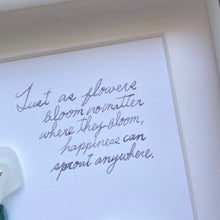 Just as flowers
bloom no matter
where they bloom,
happiness can
sprout anywhere.